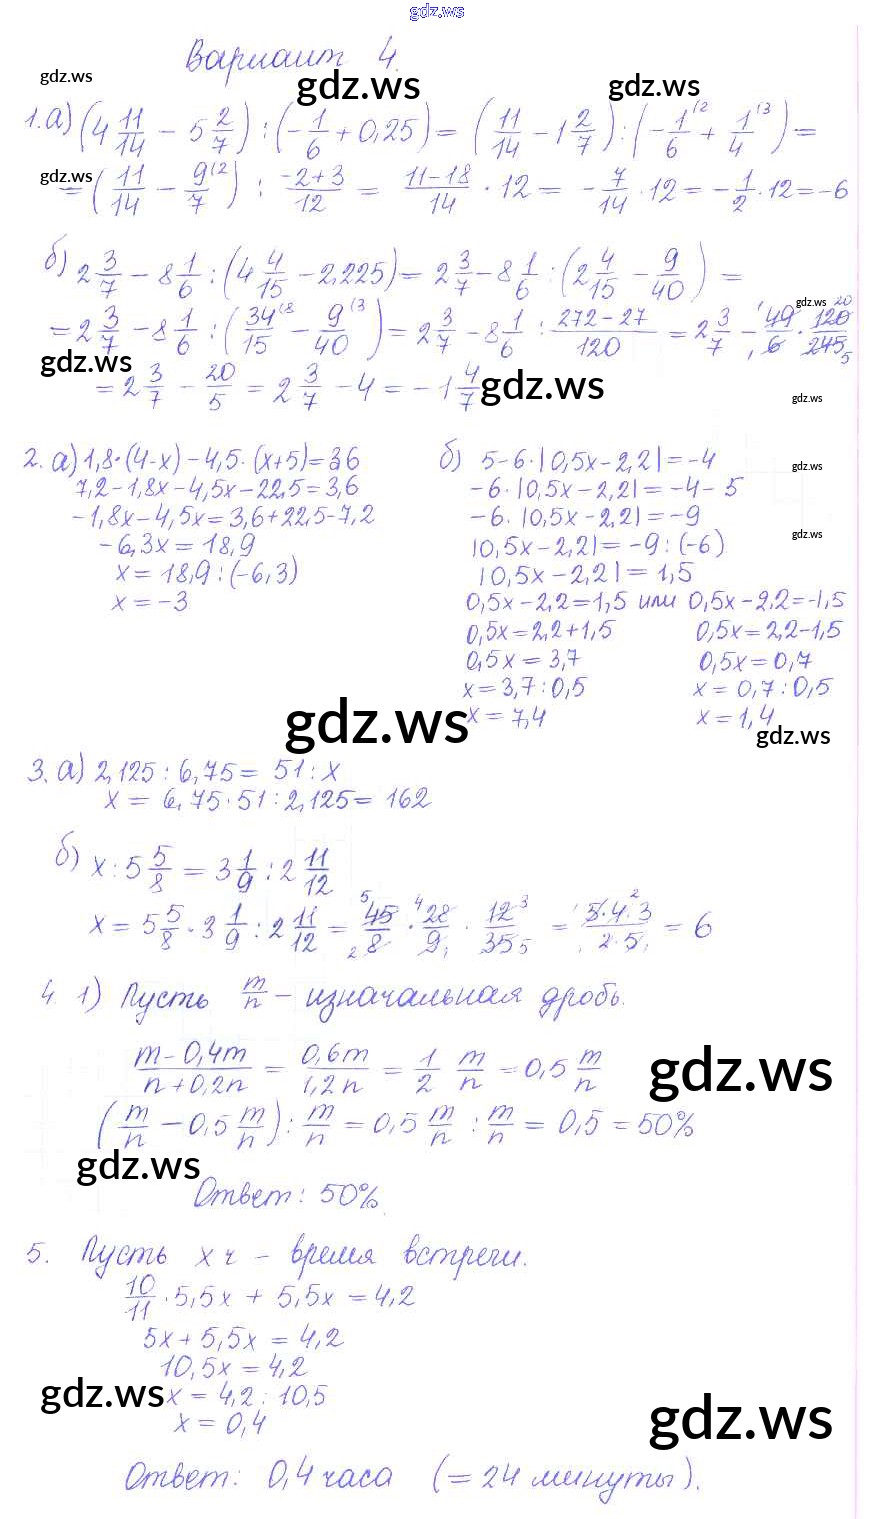 gdz.ws
Вариант 4.
gdz.ws
gdz.ws
gdz.ws
1. а) (4 11/14 - 5 2/7) : (-1/6 + 0,25) = (11/14 - 1 2/7) : (-1/6 (2 + 1/4 (3) =
gdz.ws
= (11/14 - 9/7 (2) : (-2+3)/12 = (11-18)/14 · 12 = - 7/14 · 12 = - 1/2 · 12 = -6
б) 2 3/7 - 8 1/6 : (4 4/15 - 2,225) = 2 3/7 - 8 1/6 : (2 4/15 - 9/40) =
gdz.ws
= 2 3/7 - 8 1/6 : (34/15 (8 - 9/40 (3) = 2 3/7 - 8 1/6 : (272-27)/120 = 2 3/7 - 49/6 · 120/245
gdz.ws
= 2 3/7 - 20/5 = 2 3/7 - 4 = -1 4/7
gdz.ws
gdz.ws
2. а) 1,8·(4-x) - 4,5·(x+5) = 36
7,2 - 1,8x - 4,5x - 22,5 = 3,6
-1,8x - 4,5x = 3,6 + 22,5 - 7,2
-6,3x = 18,9
x = 18,9 : (-6,3)
x = -3
б) 5 - 6·|0,5x - 2,2| = -4
gdz.ws
-6·|0,5x - 2,2| = -4 - 5
-6·|0,5x - 2,2| = -9
gdz.ws
|0,5x - 2,2| = -9 : (-6)
|0,5x - 2,2| = 1,5
0,5x - 2,2 = 1,5 или 0,5x - 2,2 = -1,5
0,5x = 2,2 + 1,5 0,5x = 2,2 - 1,5
0,5x = 3,7 0,5x = 0,7
x = 3,7 : 0,5 x = 0,7 : 0,5
x = 7,4 x = 1,4
gdz.ws
gdz.ws
3. а) 2,125 : 6,75 = 51 : x
x = 6,75·51 : 2,125 = 162
б) x : 5 5/8 = 3 1/9 : 2 11/12
x = 5 5/8 · 3 1/9 : 2 11/12 = 45/8 · 28/9 · 12/35 = 5·4·3/2·5 = 6
4. 1) Пусть m/n - изначальная дробь.
(m - 0,4m)/(n + 0,2n) = 0,6m/1,2n = 1/2 m/n = 0,5 m/n
gdz.ws
(m/n - 0,5 m/n) : m/n = 0,5 m/n : m/n = 0,5 = 50%
gdz.ws
Ответ: 50%.
5. Пусть x ч - время встречи.
10/11 · 5,5x + 5,5x = 4,2
5x + 5,5x = 4,2
10,5x = 4,2
gdz.ws
x = 4,2 : 10,5
x = 0,4
gdz.ws
Ответ: 0,4 часа (= 24 минуты).